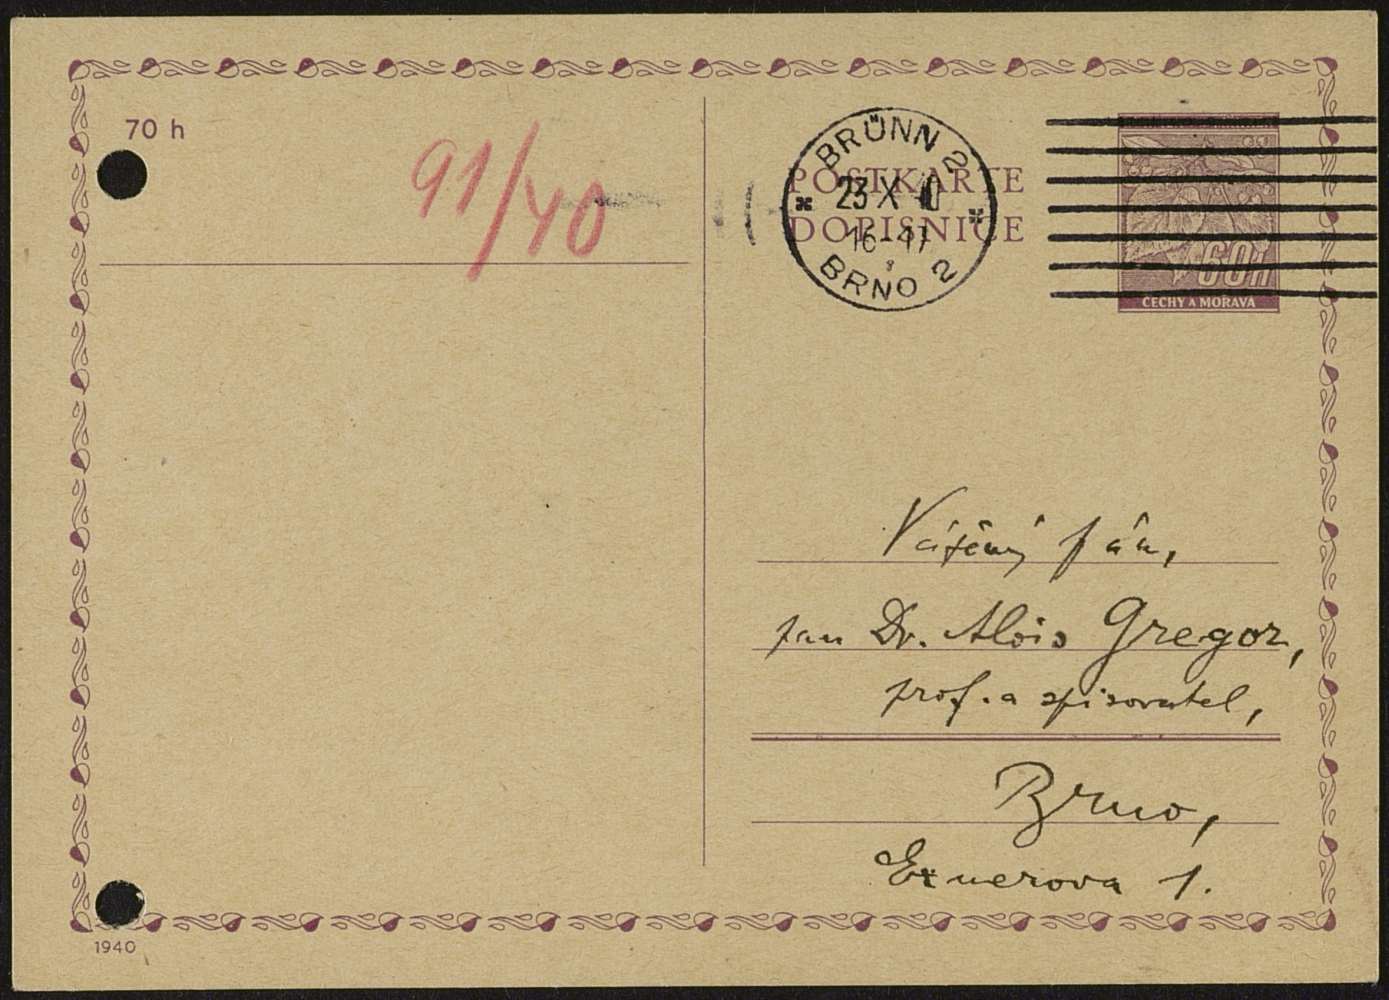 70 h
91/40
BRÜNN 2
POSTKARTE
23 X 40
DOPISNICE
16-17
BRNO 2
60h
ČECHY A MORAVA
Vážený pán,
pan Dr. Alois Gregor,
prof. a spisovatel,
Brno,
Exnerova 1.
1940